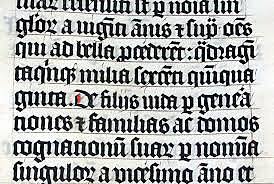 recensiti st̃ ꝑ noĩa sin
gloꝝ a uigĩti ãnis ⁊ sup̃ oẽs
qui ad bella ꝓcederẽt: q̃dragĩ
taqͥnqꝫ milia sexcẽti quĩqua
ginta. De filijs iuda ꝑ genẽa
tiones ⁊ familias ac domos
cognationũ suaꝝ ꝑ nomĩa
singuloꝝ a uicesimo ãno et